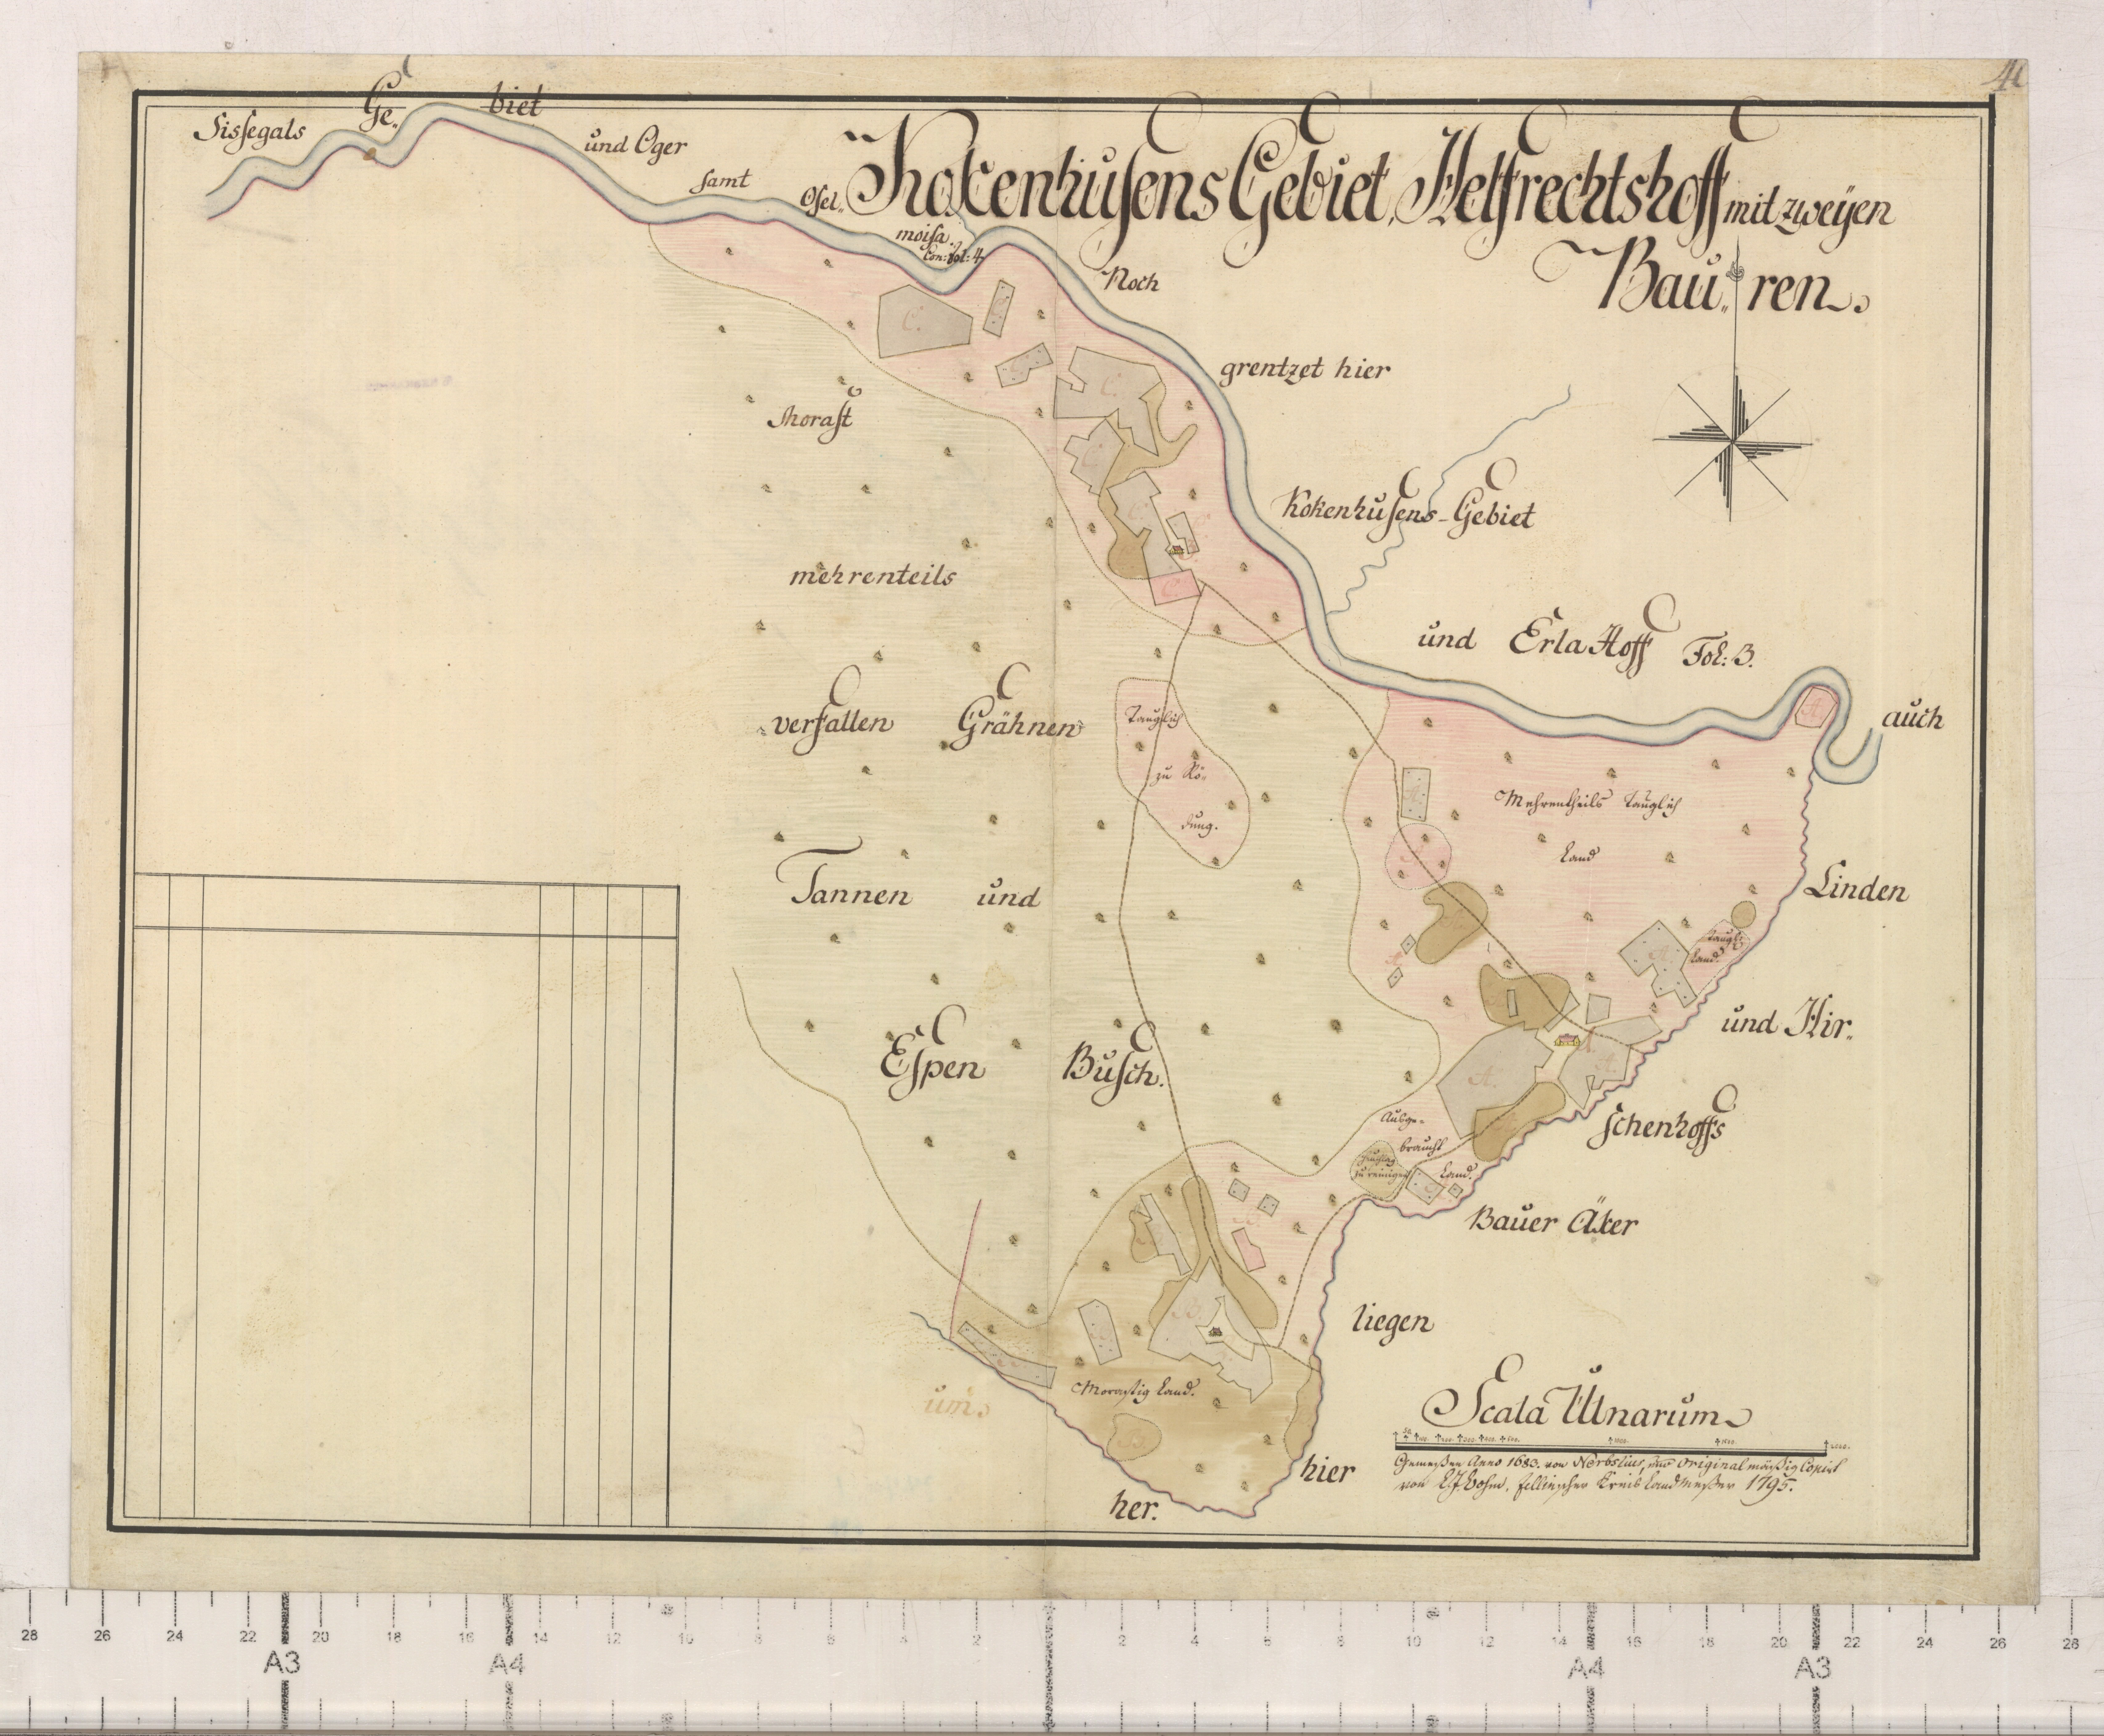 41
Sissegals Ge. biet und Oger samt Osel.
moisa. Con: fol: 4
Kokenhusens Gebiet, Helfrechtshoff mit zweÿen
Bau„ ren.
Noch
grentzet hier
Kokenhusens-Gebiet
und Erla Hoff Fol: 3.
auch
Linden
und Hir„
schenhoffs
Bauer Äker
liegen
hier
her.
um
Morast
mehrenteils
verfallen Grähnen
Tannen und
Espen Busch.
Tauglich
zu Rö„
dung.
Mehrentheils Tauglich
Land
Taugl:
Land.
Ausge„
braucht
Land.
Heuschlag
zu reinigen
Morastig Land.
C. C. C. C. C. C.
A. A. A. A. A.
B. B.
Scala Ulnarum
Gemessen Anno 1683. von Herbelius, und Original mässig Copirt
von Bohm, fellinscher Kreis Landmesser 1795.
28 26 24 22 20 18 16 14 12 10 8 6 4 2 2 4 6 8 10 12 14 16 18 20 22 24 26 28
A3 A4 A4 A3